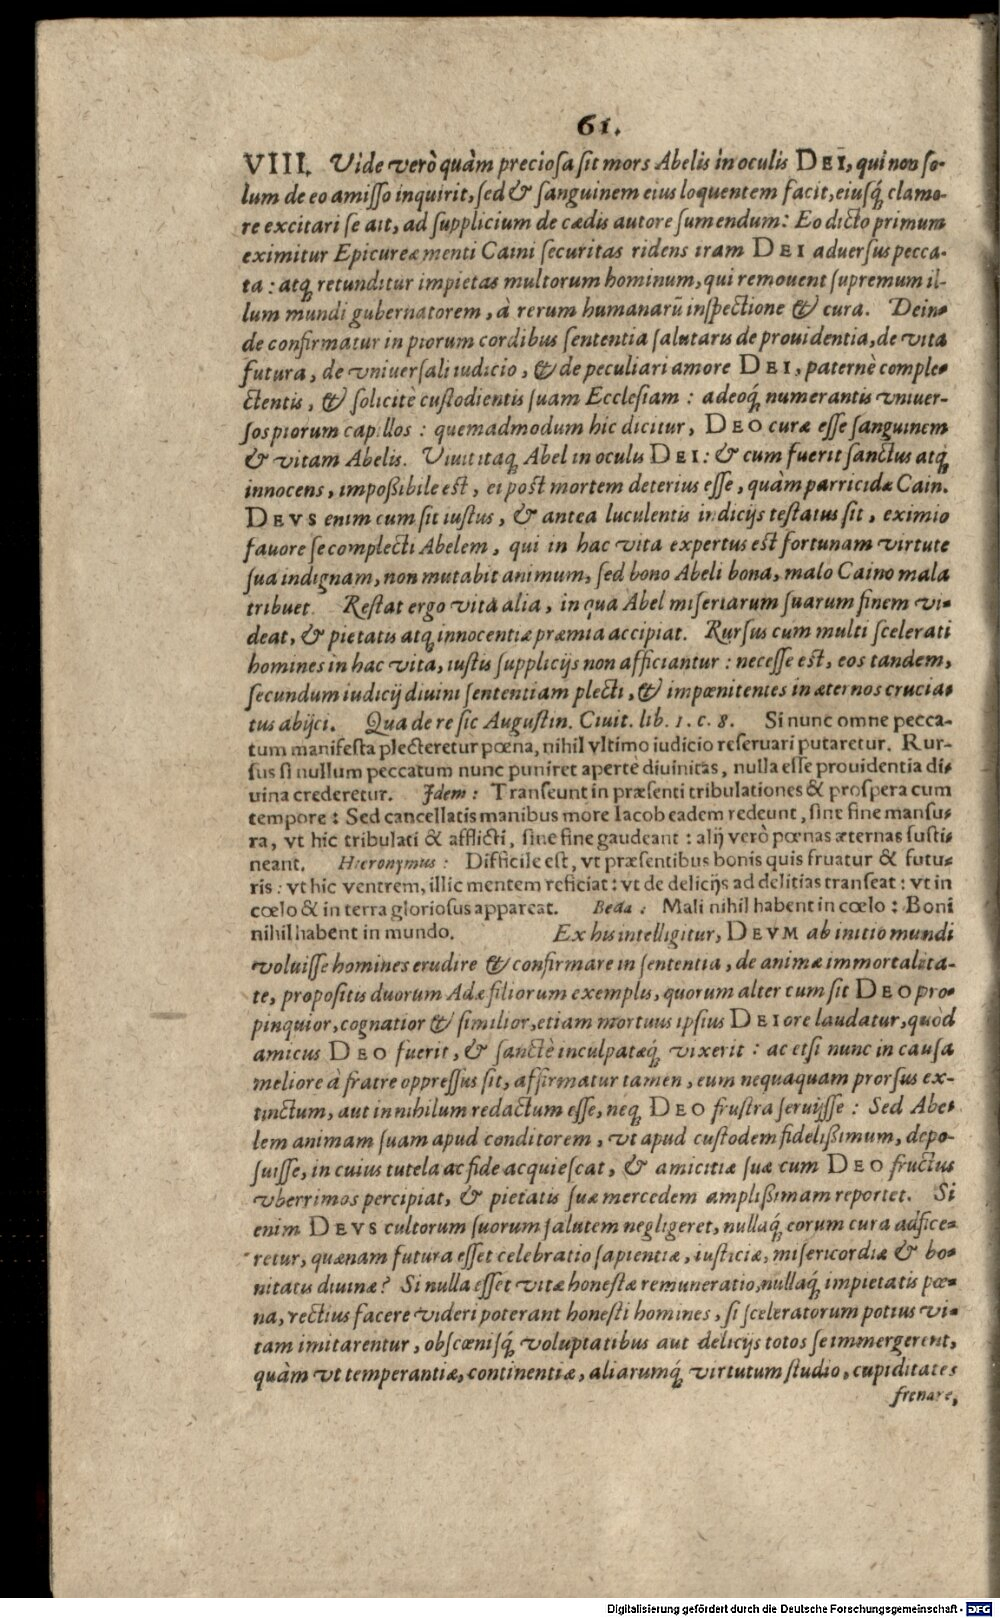 61.
VIII. Uide verò quàm preciosa sit mors Abelis in oculis DEI, qui non so-
lum de eo amisso inquirit, sed & sanguinem eius loquentem facit, eiusq́ clamo-
re excitari se ait, ad supplicium de cædis autore sumendum: Eo dicto primum
eximitur Epicureæ menti Caini securitas ridens iram DEI aduersus pecca-
ta: atq retunditur impietas multorum hominum, qui remouent supremum il-
lum mundi gubernatorem, à rerum humanarũ inspectione & cura. Dein-
de confirmatur in piorum cordibus sententia salutaris de prouidentia, de vita
futura, de vniuersali iudicio, & de peculiari amore DEI, paternè comple-
ctentis, & solicitè custodientis suam Ecclesiam: adeoq́ numerantis vniuer-
sos piorum capillos: quemadmodum hic dicitur, DEO curæ esse sanguinem
& vitam Abelis. Viuit itaq Abel in oculis DEI: & cum fuerit sanctus atq́
innocens, impoßibile est, ei post mortem deterius esse, quàm parricidæ Cain.
DEVS enim cum sit iustus, & antea luculentis indicijs testatus sit, eximio
fauore se complecti Abelem, qui in hac vita expertus est fortunam virtute
sua indignam, non mutabit animum, sed bono Abeli bona, malo Caino mala
tribuet. Restat ergo vita alia, in qua Abel miseriarum suarum finem vi-
deat, & pietatis atq innocentiæ præmia accipiat. Rursus cum multi scelerati
homines in hac vita, iustis supplicijs non afficiantur: necesse est, eos tandem,
secundum iudicij diuini sententiam plecti, & impœnitentes in æternos crucia-
tus abijci. Qua de re sic Augustin. Ciuit. lib. 1. c. 8. Si nunc omne pecca-
tum manifesta plecteretur pœna, nihil vltimo iudicio reseruari putaretur. Rur-
sus si nullum peccatum nunc puniret apertè diuinitas, nulla esse prouidentia di-
uina crederetur. Idem: Transeunt in præsenti tribulationes & prospera cum
tempore: Sed cancellatis manibus more Iacob eadem redeunt, sine fine mansu-
ra, vt hic tribulati & afflicti, sine fine gaudeant: alij verò pœnas æternas susti-
neant. Hieronymus: Difficile est, vt præsentibus bonis quis fruatur & futu-
ris: vt hic ventrem, illic mentem reficiat: vt de delicijs ad delitias transeat: vt in
cœlo & in terra gloriosus appareat. Beda: Mali nihil habent in cœlo: Boni
nihil habent in mundo. Ex his intelligitur, DEVM ab initio mundi
voluisse homines erudire & confirmare in sententia, de animæ immortalita-
te, propositis duorum Adæ filiorum exemplis, quorum alter cum sit DEO pro-
pinquior, cognatior & similior, etiam mortuus ipsius DEI ore laudatur, quòd
amicus DEO fuerit, & sanctè inculpatæq́ vixerit: ac etsi nunc in causa
meliore à fratre oppressus sit, affirmatur tamen, eum nequaquam prorsus ex-
tinctum, aut in nihilum redactum esse, neq DEO frustra seruijsse: Sed Abe-
lem animam suam apud conditorem, vt apud custodem fidelißimum, depo-
suisse, in cuius tutela ac fide acquiescat, & amicitiæ suæ cum DEO fructus
vberrimos percipiat, & pietatis suæ mercedem amplißimam reportet. Si
enim DEVS cultorum suorum salutem negligeret, nullaq́ eorum cura adfice-
retur, quænam futura esset celebratio sapientiæ, iusticiæ, misericordiæ & bo-
nitatis diuinæ? Si nulla esset vitæ honestæ remuneratio, nullaq́ impietatis pœ-
na, rectius facere videri poterant honesti homines, si sceleratorum potius vi-
tam imitarentur, obscœnisq́ voluptatibus aut delicijs totos se immergerent,
quàm vt temperantiæ, continentiæ, aliarumq́ virtutum studio, cupiditates
frenare,
Digitalisierung gefördert durch die Deutsche Forschungsgemeinschaft - DFG